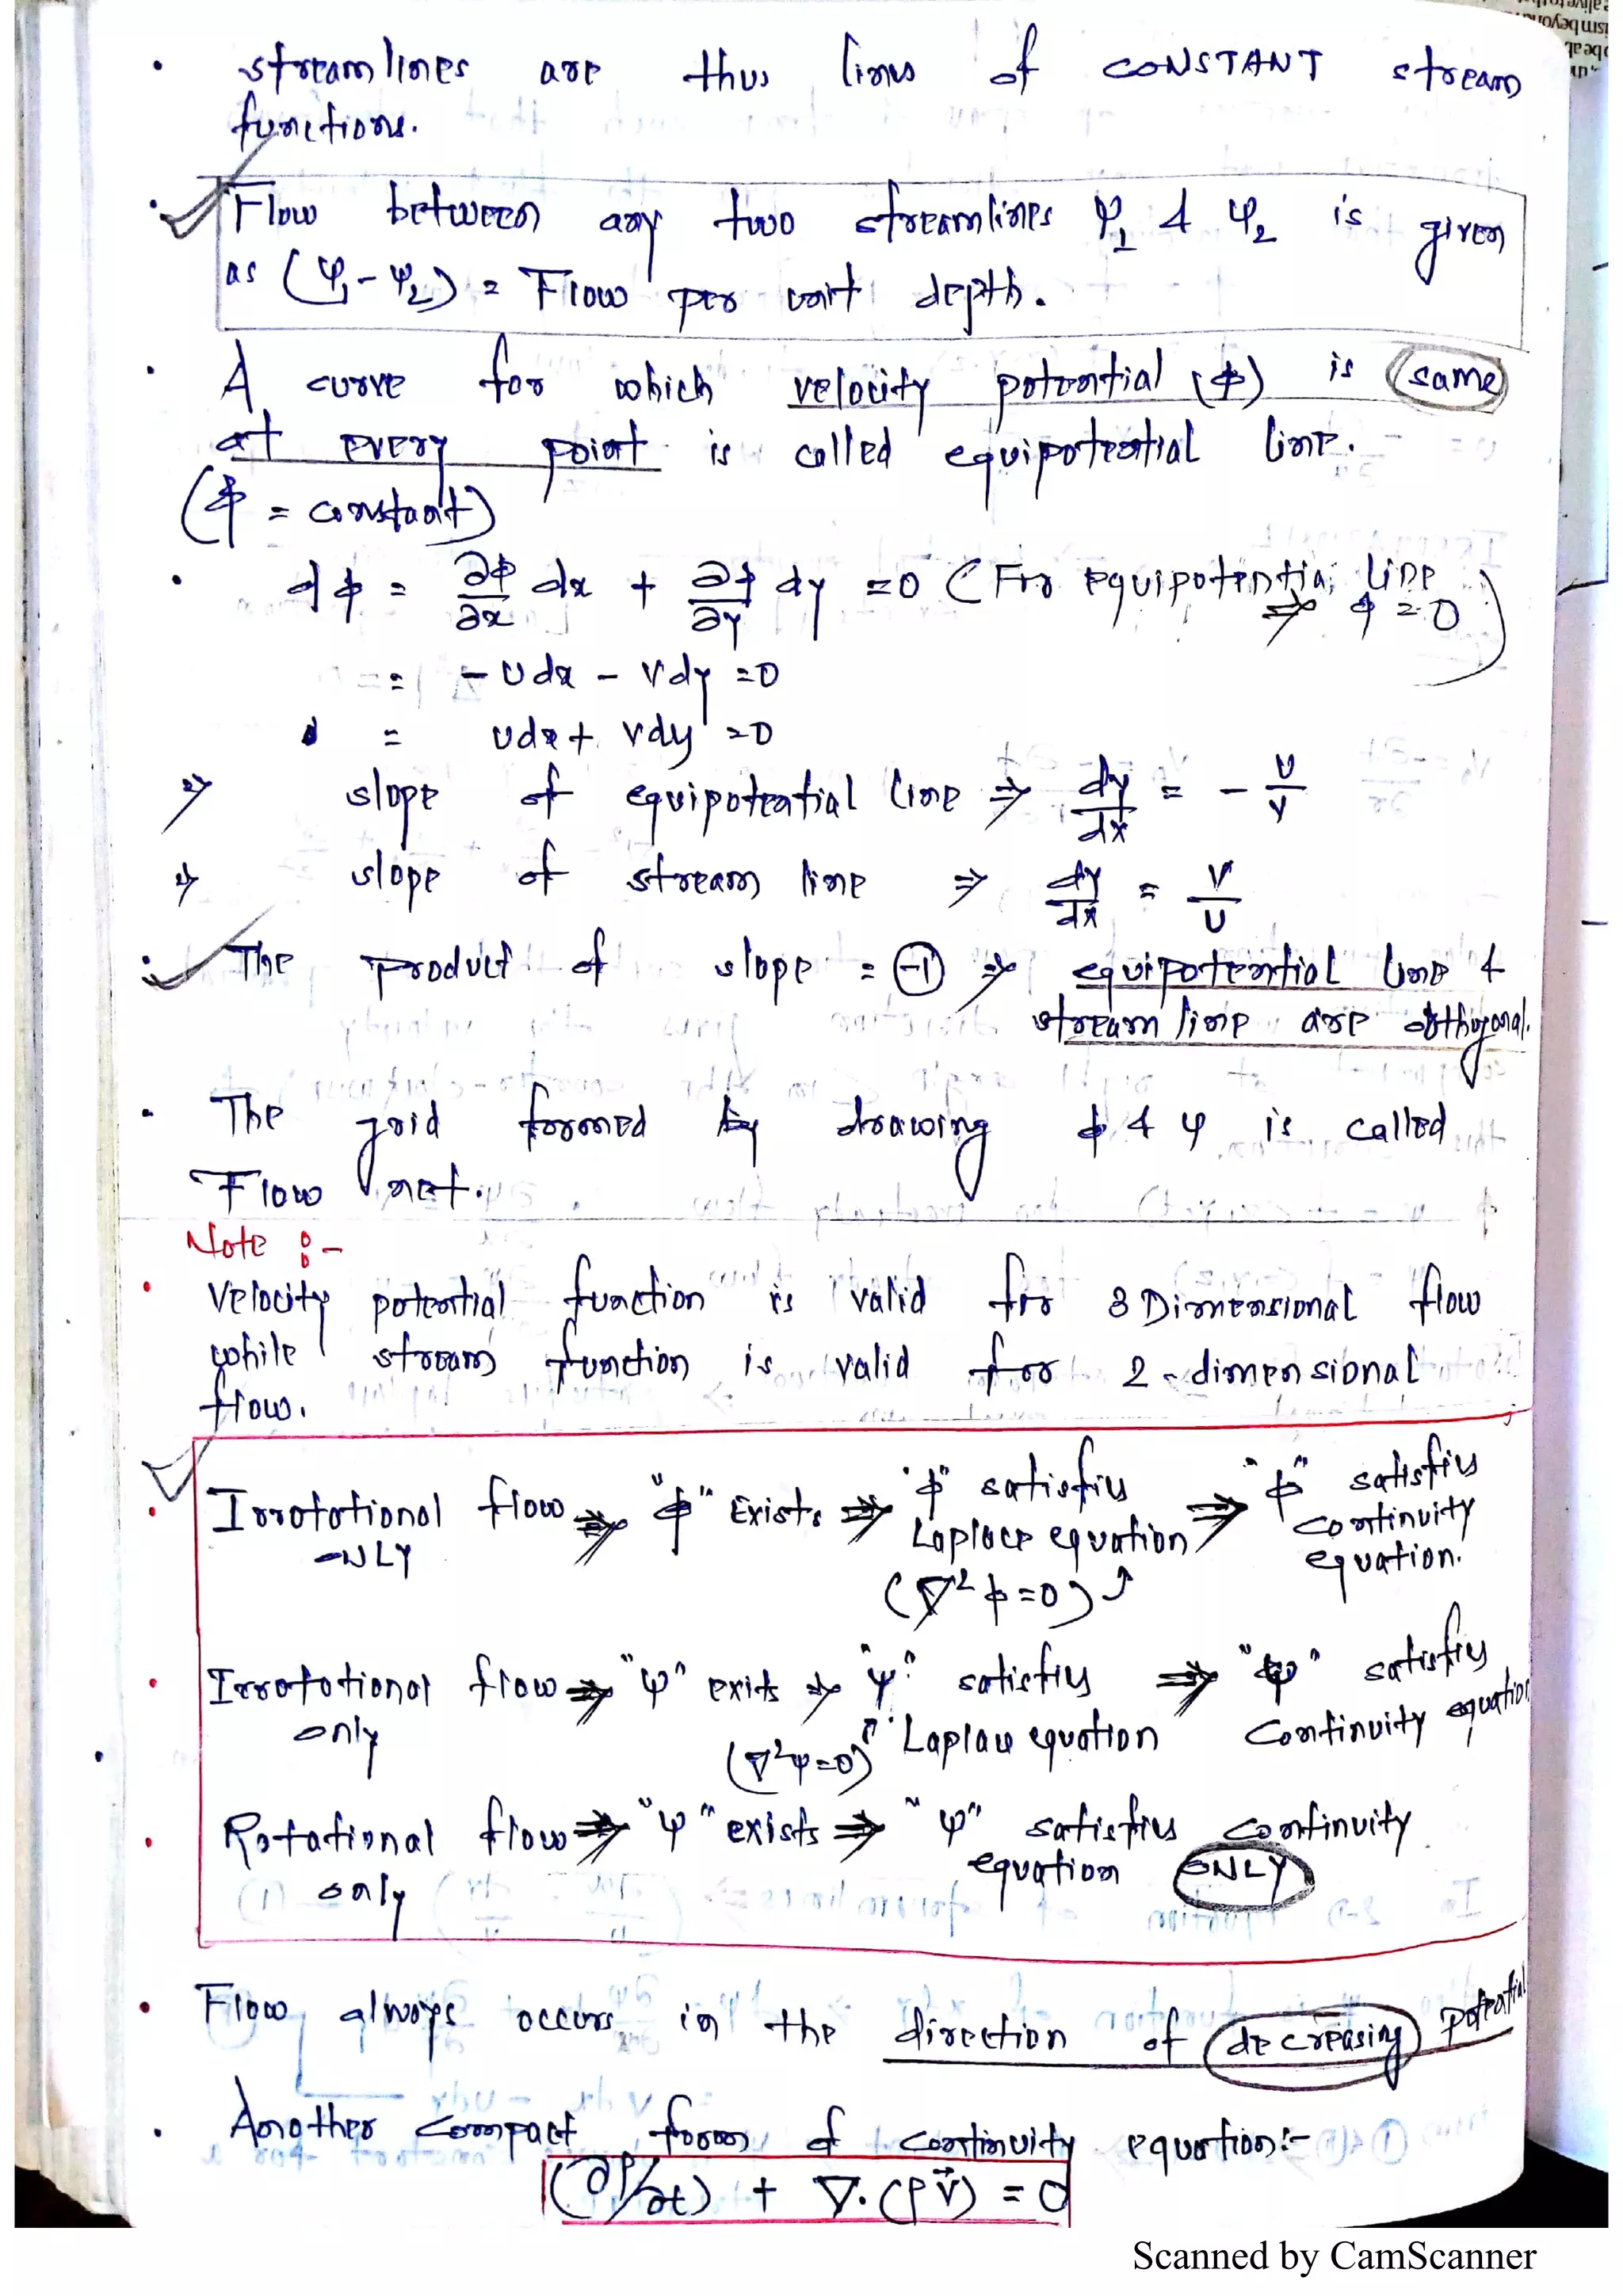 • streamlines are thus lines of CONSTANT stream
functions.
• Flow between any two streamlines ψ₁ & ψ₂ is given
as (ψ₁-ψ₂) = Flow per unit depth.
• A curve for which velocity potential (φ) is same
at every point is called equipotential line.
(φ = constant)
• dφ = ∂φ/∂x dx + ∂φ/∂y dy =0 (For equipotential line
⇒ φ=0)
= -udx - vdy =0
= udx + vdy =0
⇒ slope of equipotential line ⇒ dy/dx = - u/v
⇒ slope of stream line ⇒ dy/dx = v/u
• The product of slope = -1 ⇒ equipotential line &
stream line are orthogonal.
• The grid formed by drawing φ & ψ is called
Flow net.
Note :-
• Velocity potential function is valid for 3 Dimensional flow
while stream function is valid for 2-dimensional
flow.
• Irrotational flow ⇒ "φ" Exists ⇒ "φ" satisfies ⇒ "φ" satisfies
ONLY Laplace equation continuity
(∇²φ=0) equation.
• Irrotational flow ⇒ "ψ" exits ⇒ "ψ" satisfies ⇒ "ψ" satisfies
only (∇²ψ=0) Laplace equation Continuity equation
• Rotational flow ⇒ "ψ" exists ⇒ "ψ" satisfies continuity
only equation ONLY
• Flow always occurs in the direction of decreasing potential
• Another compact form of continuity equation:-
(∂ρ/∂t) + ∇.(ρv⃗) = 0
Scanned by CamScanner